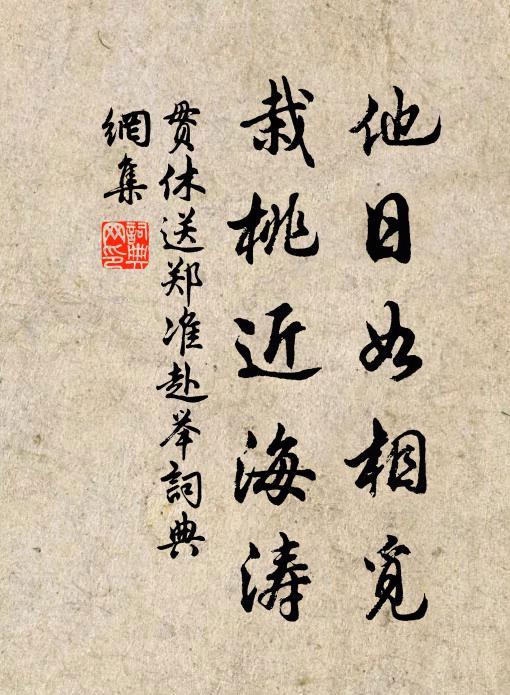 他日如相觅
栽桃近海涛
贯休送郑准赴举詞典
網集
詞典
网印